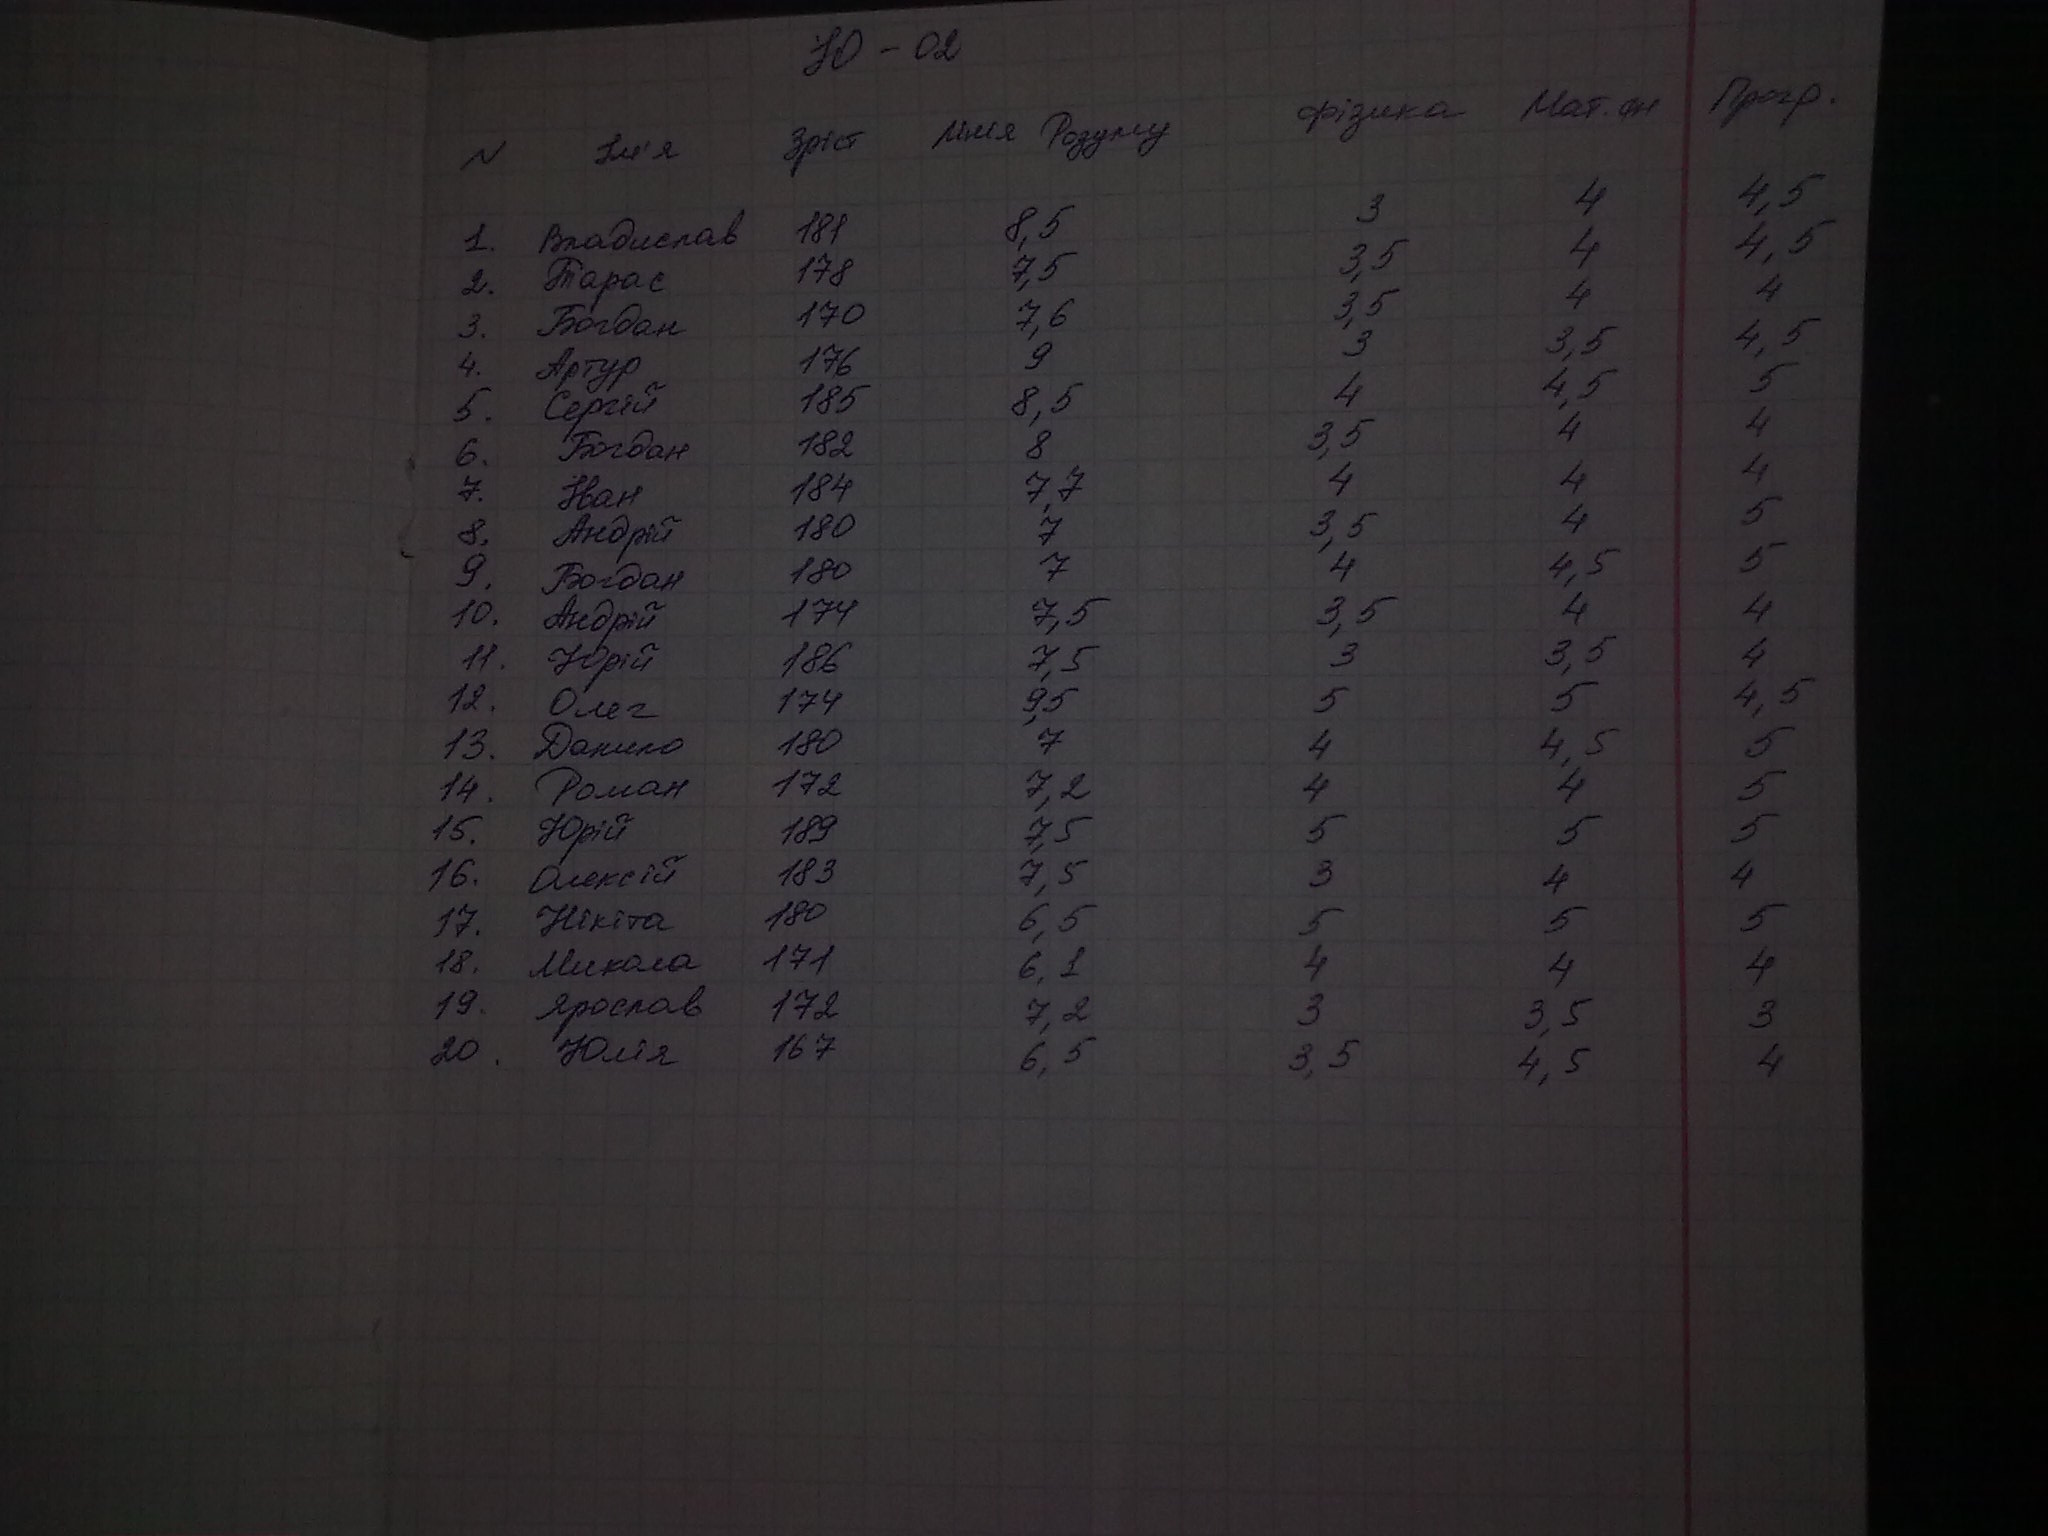 ІО - 02
N Ім'я Зріст Лінія Розуму Фізика Мат. ан Прогр.
1. Владислав 181 8,5 3 4 4,5
2. Тарас 178 7,5 3,5 4 4,5
3. Богдан 170 7,6 3,5 4 4
4. Артур 176 9 3 3,5 4,5
5. Сергій 185 8,5 4 4,5 5
6. Богдан 182 8 3,5 4 4
7. Іван 184 7,7 4 4 4
8. Андрій 180 7 3,5 4 5
9. Богдан 180 7 4 4,5 5
10. Андрій 174 7,5 3,5 4 4
11. Юрій 186 7,5 3 3,5 4
12. Олег 174 9,5 5 5 4,5
13. Данило 180 7 4 4,5 5
14. Роман 172 7,2 4 4 5
15. Юрій 189 7,5 5 5 5
16. Олексій 183 7,5 3 4 4
17. Нікіта 180 6,5 5 5 5
18. Микола 171 6,1 4 4 4
19. Ярослав 172 7,2 3 3,5 3
20. Юлія 167 6,5 3,5 4,5 4